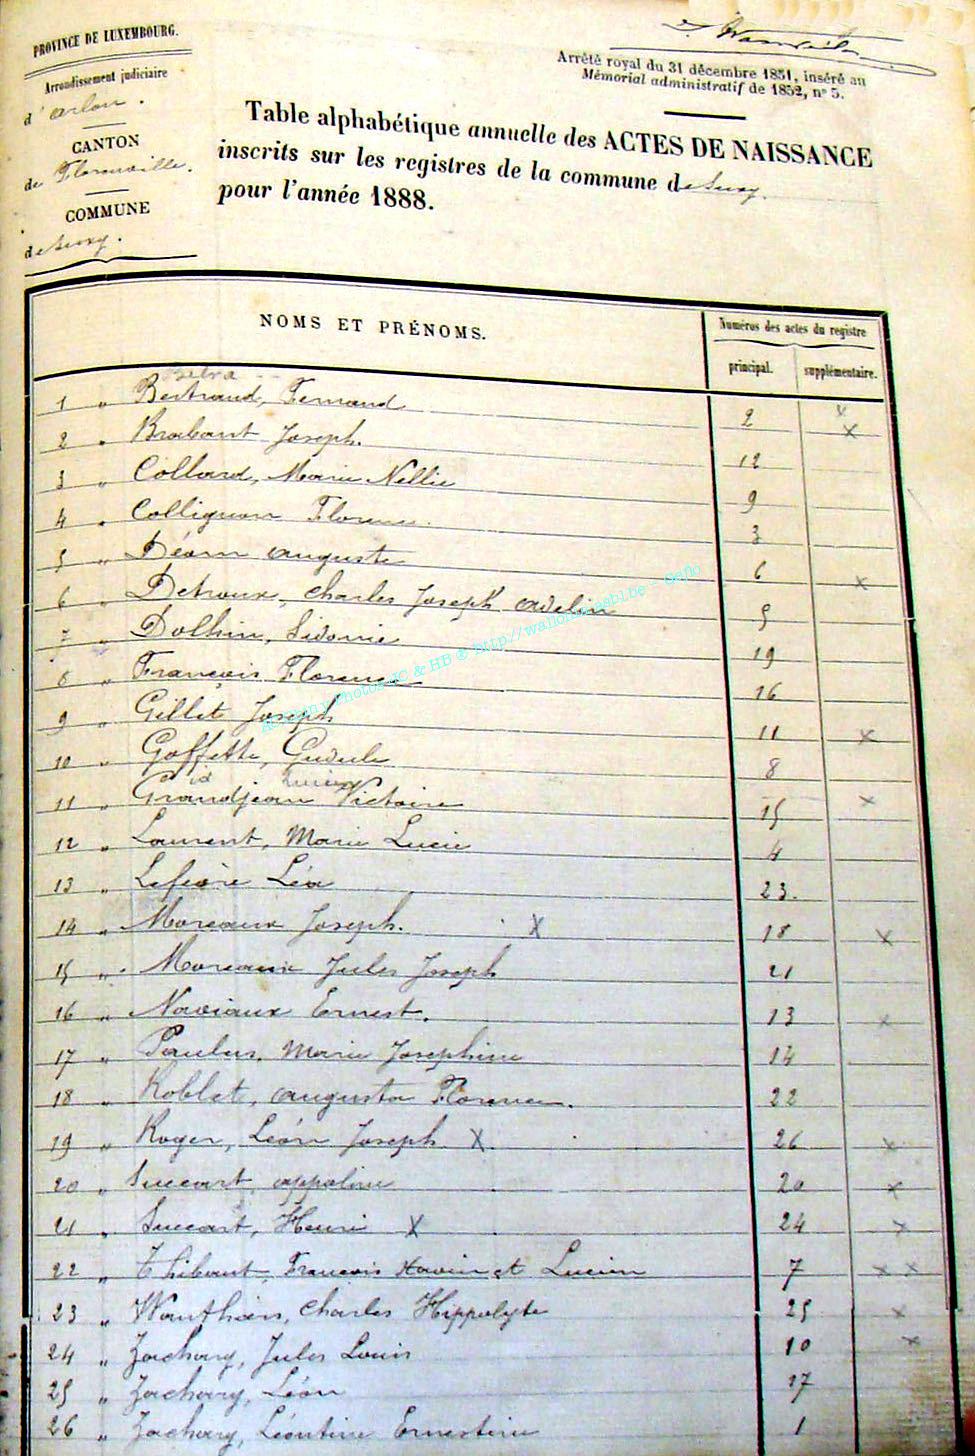 PROVINCE DE LUXEMBOURG.
Arrondissement judiciaire
d'arlon.
CANTON
de Florenville.
COMMUNE
de Suxy.
Arrêté royal du 31 décembre 1851, inséré au
Mémorial administratif de 1852, n° 5.
Table alphabétique annuelle des ACTES DE NAISSANCE
inscrits sur les registres de la commune de Suxy.
pour l'année 1888.
NOMS ET PRÉNOMS.
Numéros des actes du registre
principal. supplémentaire.
1 " Bertrand, Fernand 2 x
2 " Brabant Joseph. 12 x
3 " Collard, Marie Nellie 9
4 " Collignon Florence. 3
5 " Déom auguste 6 x
6 " Detroux, Charles Joseph adelin 5
7 " Dolhin, Sidonie 19
8 " François Florence 16
9 " Gillet Joseph 11 x
10 " Goffette, Gudule 8
11 " Grandjean Victoire 15 x
12 " Laurent, Marie Lucie 4
13 " Lefèvre Léa 23.
14 " Moreaux Joseph. X 18 x
15 " Moreaux Jules Joseph 21
16 " Naviaux Ernest. 13 x
17 " Paulus, Marie Josephine 14
18 " Roblet, augusta Florence. 22
19 " Roger, Léon Joseph X 26 x
20 " Succart, appoline 20 x
21 " Succart, Henri X 24 x
22 " Thibaut, François Xavier et Lucien 7 x x
23 " Wauthier, Charles Hippolyte 25 x
24 " Zachary, Jules Louis 10 x
25 " Zachary, Léon 17
26 " Zachary, Léontine Ernestine 1